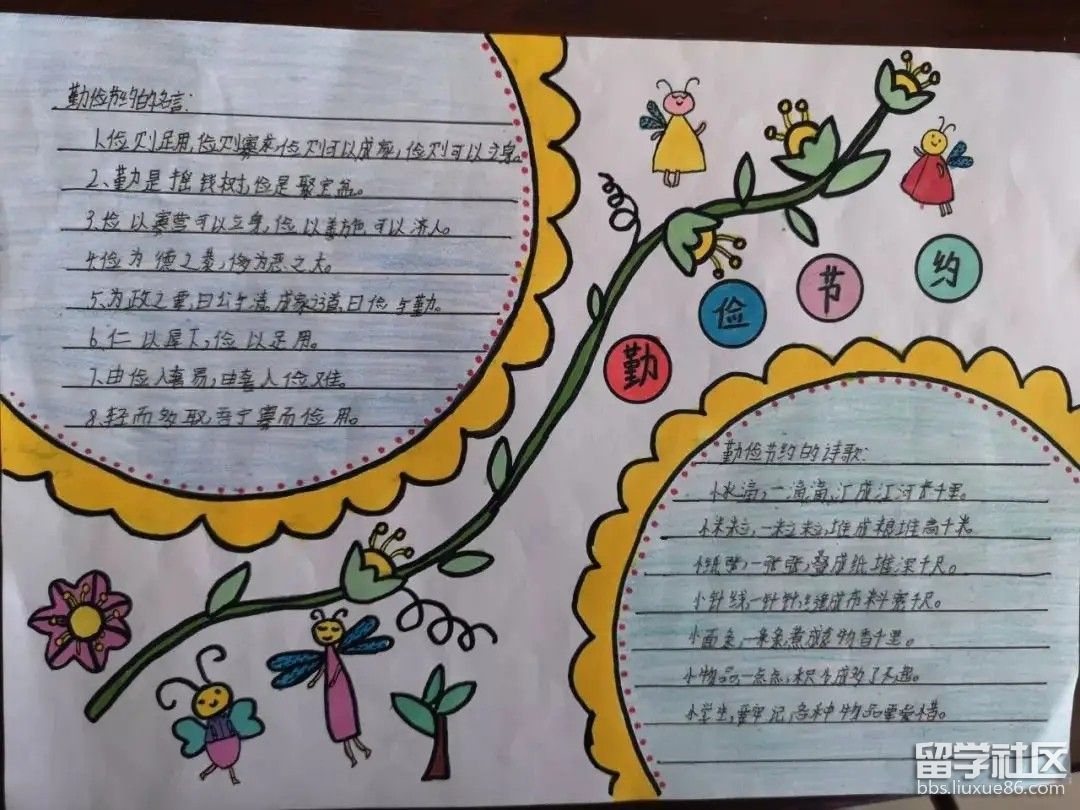 勤俭节约的名言:
1.俭则足用,俭则寡求,俭则可以成家,俭则可以立身。
2、勤是摇钱树,俭是聚宝盆。
3.俭以寡营可以立身,俭以善施可以济人。
4.俭为德之 侈为恶之大。
5、为政之要,曰公与清,成家之道,曰俭与勤。
6、仁以厚下,俭以足用。
7、由俭入奢易,由奢入俭难。
8.轻而多取 寡而俭用。
勤
俭
节
约
勤俭节约的诗歌:
小水滴,一滴滴,汇成江河 千里。
小米粒,一粒粒,堆成粮堆高千米。
小纸张,一张张,叠成纸堆深千尺。
小针线,一针针,缝成布料宽千尺。
小面条,一条条,煮成食物香千里。
小物品,一点点,积少成多了不起。
小学生,要牢记,各种物品要爱惜。
留学社区
bbs.liuxue86.com